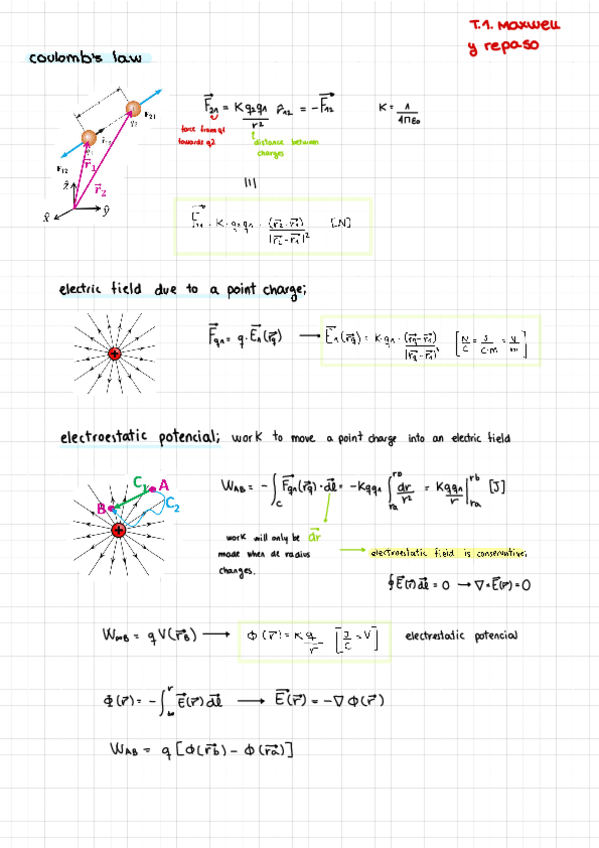 T.1. Maxwell
y repaso
coulomb's law
F₂₁ = K q₂q₁/r² r̂₁₂ = -F₁₂
K = 1/4πε₀
force from q1
towards q2
distance between
charges
F₂₁
q₂
F₁₂
r₁
r₂
ẑ
x̂
ŷ
K · q₂q₁ · (r₂ - r₁)/|r₂ - r₁|² [N]
electric field due to a point charge;
F_q1 = q · E₁(r_q) → E₁(r_q) = K · q₁ · (r_q - r₁)/|r_q - r₁| [N/C = J/C·m = V/m]
electroestatic potencial; work to move a point charge into an electric field
C₁ A
B C₂
W_AB = -∫_C F_q1(r_q) · dl = -Kqq₁ ∫_ra^rb dr/r² = Kqq₁/r |_ra^rb [J]
work will only be dr
made when de radius
changes.
electroestatic field is conservative;
∮E(r)dl = 0 → ∇×E(r) = 0
W_∞B = qV(r_B) → Φ(r) = K q/r [J/C = V] electrostatic potencial
Φ(r) = -∫_∞^r E(r)dl → E(r) = -∇Φ(r)
W_AB = q[Φ(rb) - Φ(ra)]